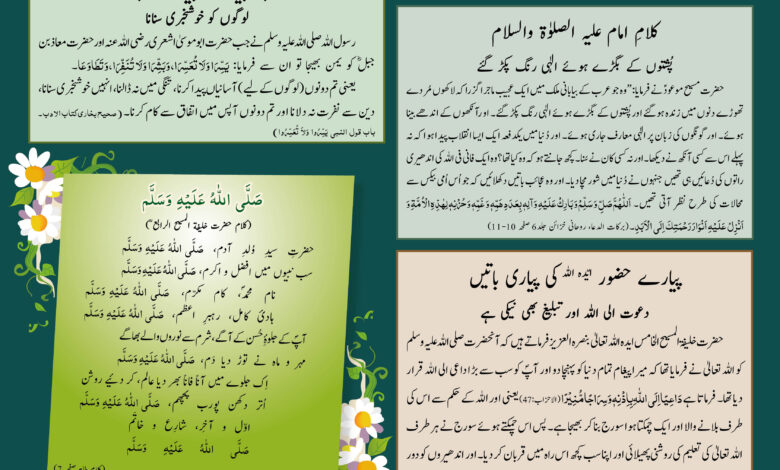 لوگوں کو خوشخبری سنانا
رسول اللہ صلی اللہ علیہ وسلم نے جب حضرت ابو موسیٰ اشعری رضی اللہ عنہ اور حضرت معاذ بن
جبلؓ کو یمن بھیجا تو ان سے فرمایا: یَسِّرَا وَلَا تُعَسِّرَا، وَبَشِّرَا وَلَا تُنَفِّرَا، وَتَطَاوَعَا۔
یعنی تم دونوں (لوگوں کے لیے) آسانیاں پیدا کرنا، تنگی میں نہ ڈالنا، انہیں خوشخبری سنانا،
دین سے نفرت نہ دلانا اور تم دونوں آپس میں اتفاق سے کام کرنا۔ (صحیح بخاری کتاب الادب۔
باب قول النبی یَسِّرُوا وَلَا تُعَسِّرُوا)
صَلَّی اللّٰہُ عَلَیْہِ وَسَلَّمَ
(کلام حضرت خلیفۃ المسیح الرابعؒ)
حضرت سیدِ وُلدِ آدم، صَلَّی اللّٰہُ عَلَیْہِ وَسَلَّمَ
سب نبیوں میں افضل و اکرم، صَلَّی اللّٰہُ عَلَیْہِ وَسَلَّمَ
نام محمدؐ، کام مکرّم، صَلَّی اللّٰہُ عَلَیْہِ وَسَلَّمَ
ہادیٔ کامل، رہبرِ اعظم، صَلَّی اللّٰہُ عَلَیْہِ وَسَلَّمَ
آپؐ کے جلوۂ حُسن کے آگے، شرم سے نوروں والے بھاگے
مہر و ماہ نے توڑ دیا دَم، صَلَّی اللّٰہُ عَلَیْہِ وَسَلَّمَ
اِک جلوے میں آناً فاناً بھر دیا عالَم، کر دئیے روشن
اُتر دکھن پورب پچھم، صَلَّی اللّٰہُ عَلَیْہِ وَسَلَّمَ
اوّل و آخر، شارع و خاتم
صَلَّی اللّٰہُ عَلَیْہِ وَسَلَّمَ
کلامِ امام علیہ الصلوٰۃ والسلام
پُشتوں کے بگڑے ہوئے الٰہی رنگ پکڑ گئے
حضرت مسیح موعودؑ نے فرمایا: ’’وہ جو عرب کے بیابانی ملک میں ایک عجیب ماجرا گزرا کہ لاکھوں مُردے
تھوڑے دنوں میں زندہ ہو گئے اور پشتوں کے بگڑے ہوئے الٰہی رنگ پکڑ گئے۔ اور آنکھوں کے اندھے بینا
ہوئے۔ اور گونگوں کی زبان پر الٰہی معارف جاری ہوئے۔ اور دُنیا میں یکدفعہ ایک ایسا انقلاب پیدا ہوا کہ نہ
پہلے اس سے کسی آنکھ نے دیکھا۔ اور نہ کسی کان نے سُنا۔ کچھ جانتے ہو کہ وہ کیا تھا؟ وہ ایک فانی فی اللہ کی اندھیری
راتوں کی دُعائیں ہی تھیں جنہوں نے دُنیا میں شور مچا دیا۔ اور وہ عجائب باتیں دکھلائیں کہ جو اُس اُمی بیکس سے
محالات کی طرح نظر آتی تھیں۔ اَللّٰھُمَّ صَلِّ وَسَلِّمْ وَبَارِکْ عَلَیْہِ وَآلِہٖ بِعَدَدِ ھَمِّہٖ وَغَمِّہٖ وَحُزْنِہٖ لِھٰذِہِ الْاُمَّۃِ وَ
اَنْزِلْ عَلَیْہِ اَنْوَارَ رَحْمَتِکَ اِلَی الْاَبَدِ۔ (برکات الدعاء روحانی خزائن جلد 6 صفحہ 10-11)
پیارے حضور ایدہ اللہ کی پیاری باتیں
دعوت الی اللہ اور تبلیغ بھی نیکی ہے
حضرت خلیفۃ المسیح الخامس ایدہ اللہ تعالیٰ بنصرہ العزیز فرماتے ہیں کہ آنحضرت صلی اللہ علیہ وسلم
کو اللہ تعالیٰ نے فرمایا تھا کہ میرا پیغام تمام دنیا کو پہنچا دو اور آپؐ کو سب سے بڑا داعی الی اللہ قرار
دیا تھا۔ فرماتا ہے دَاعِیًا اِلَی اللّٰہِ بِاِذْنِہٖ وَسِرَاجًا مُّنِیْرًا (الاحزاب: 47) یعنی اور اللہ کے حکم سے اس کی
طرف بلانے والا اور ایک چمکتا ہوا سورج بنا کر بھیجا ہے۔ پس اس چمکتے ہوئے سورج نے ہر طرف
اللہ تعالیٰ کی تعلیم کی روشنی پھیلائی اور اپنا سب کچھ اس راہ میں قربان کر دیا۔ اور اندھیروں کو دور